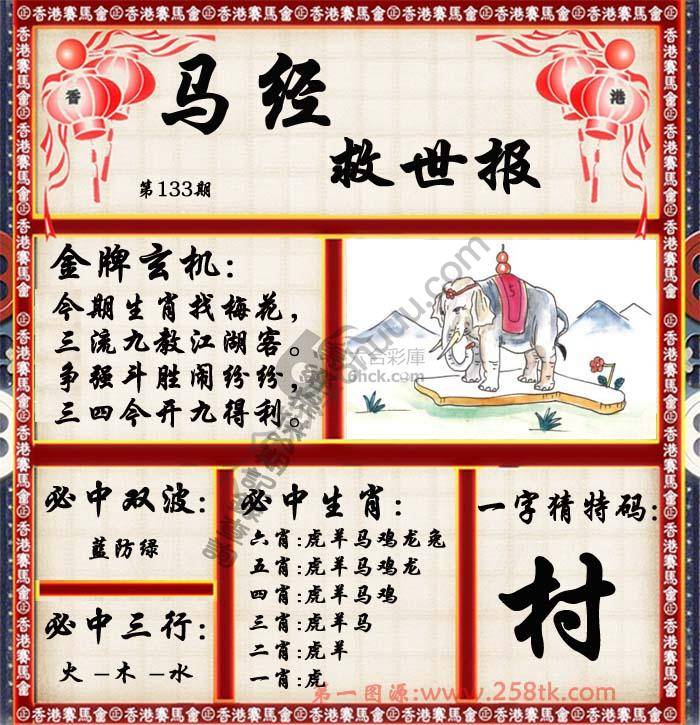 香
港
马经
救世报
第133期
金牌玄机:
今期生肖找梅花,
三流九教江湖客。
争强斗胜闹纷纷,
三四今开九得利。
5
六合彩庫
6hck.com
必中双波:
蓝防绿
必中三行:
火-木-水
必中生肖:
六肖:虎羊马鸡龙兔
五肖:虎羊马鸡龙
四肖:虎羊马鸡
三肖:虎羊马
二肖:虎羊
一肖:虎
一字猜特码:
村
第一图源:www.258tk.com
香港赛馬會